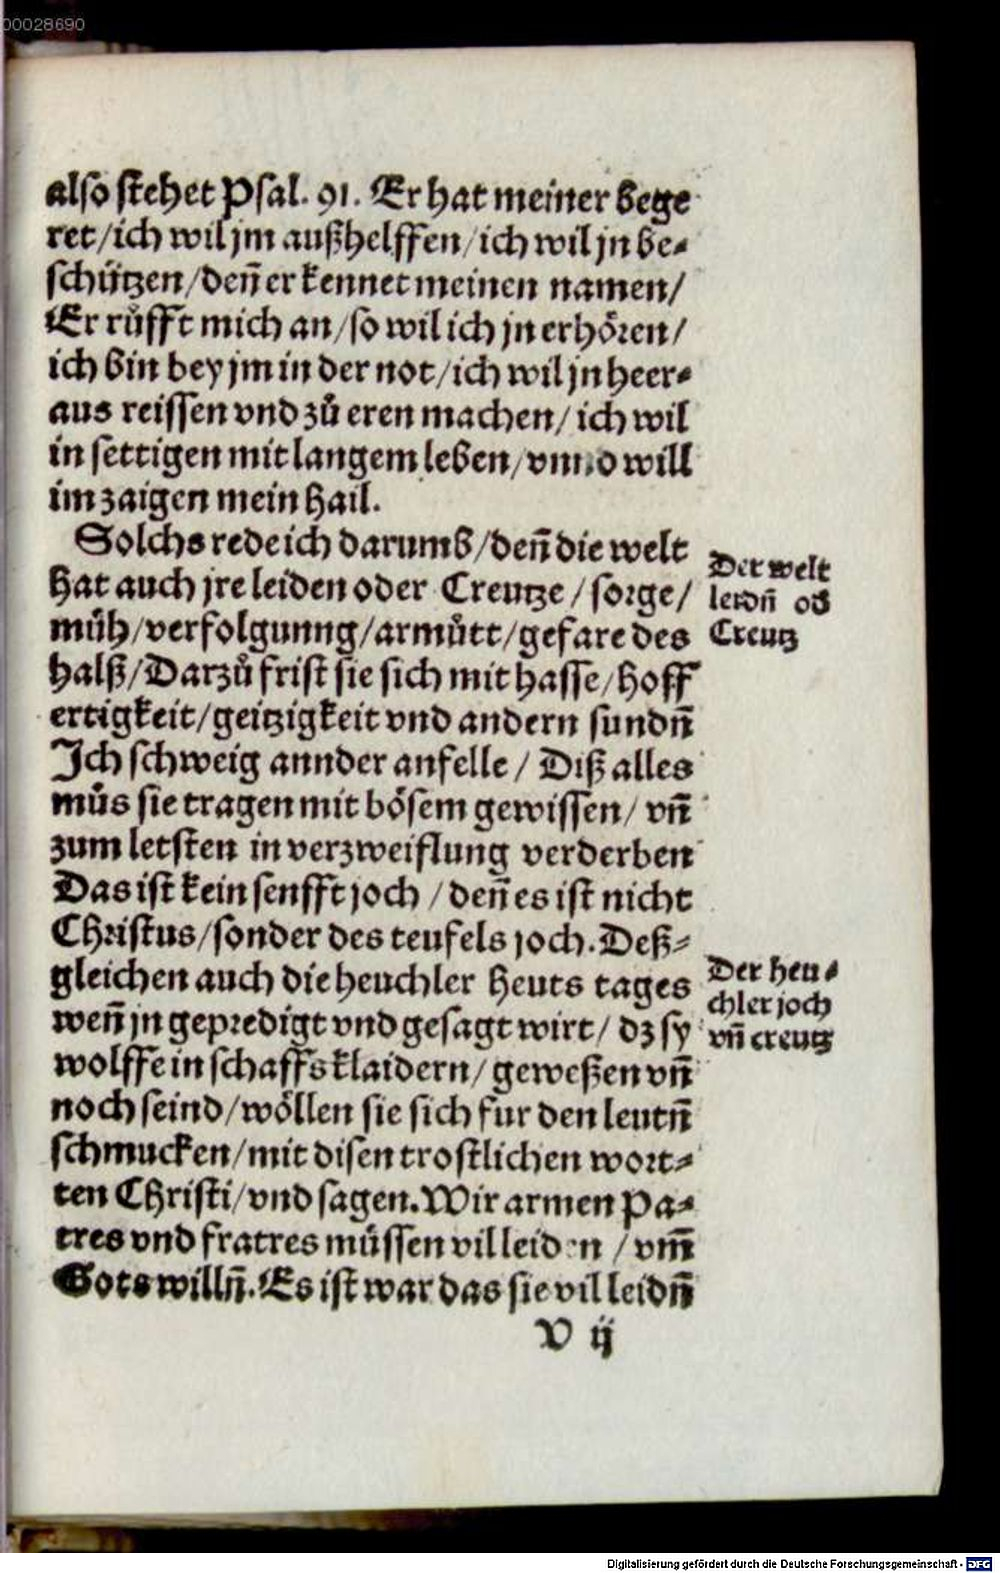 00028690
also stehet Psal. 91. Er hat meiner bege
ret/ich wil jm außhelffen/ich wil jn be⸗
schützen/deñ er kennet meinen namen/
Er růfft mich an/so wil ich jn erhören/
ich bin bey jm in der not/ich wil jn heer⸗
aus reissen vnd zů eren machen/ich wil
in settigen mit langem leben/vnnd will
im zaigen mein hail.
Solchs rede ich darumb/deñ die welt
hat auch jre leiden oder Creutze/sorge/
müh/verfolgunng/armůtt/gefare des
halß/Darzů frist sie sich mit hasse/hoff
ertigkeit/geitzigkeit vnd andern sundñ
Ich schweig annder anfelle/Diß alles
můs sie tragen mit bösem gewissen/vñ
zum letsten in verzweiflung verderben
Das ist kein senfft joch/deñ es ist nicht
Christus/sonder des teufels joch. Deß⸗
gleichen auch die heuchler heuts tages
weñ jn gepredigt vnd gesagt wirt/dz sy
wolffe in schaffs klaidern/geweßen vñ
noch seind/wöllen sie sich fur den leutñ
schmucken/mit disen trostlichen wort⸗
ten Christi/vnd sagen. Wir armen Pa⸗
tres vnd fratres müssen vil leiden/vm̃
Gots willñ. Es ist war das sie vil leidñ
V ij
Der welt
leidñ od
Creutz
Der heu⸗
chler joch
vñ creutz
Digitalisierung gefördert durch die Deutsche Forschungsgemeinschaft - DFG